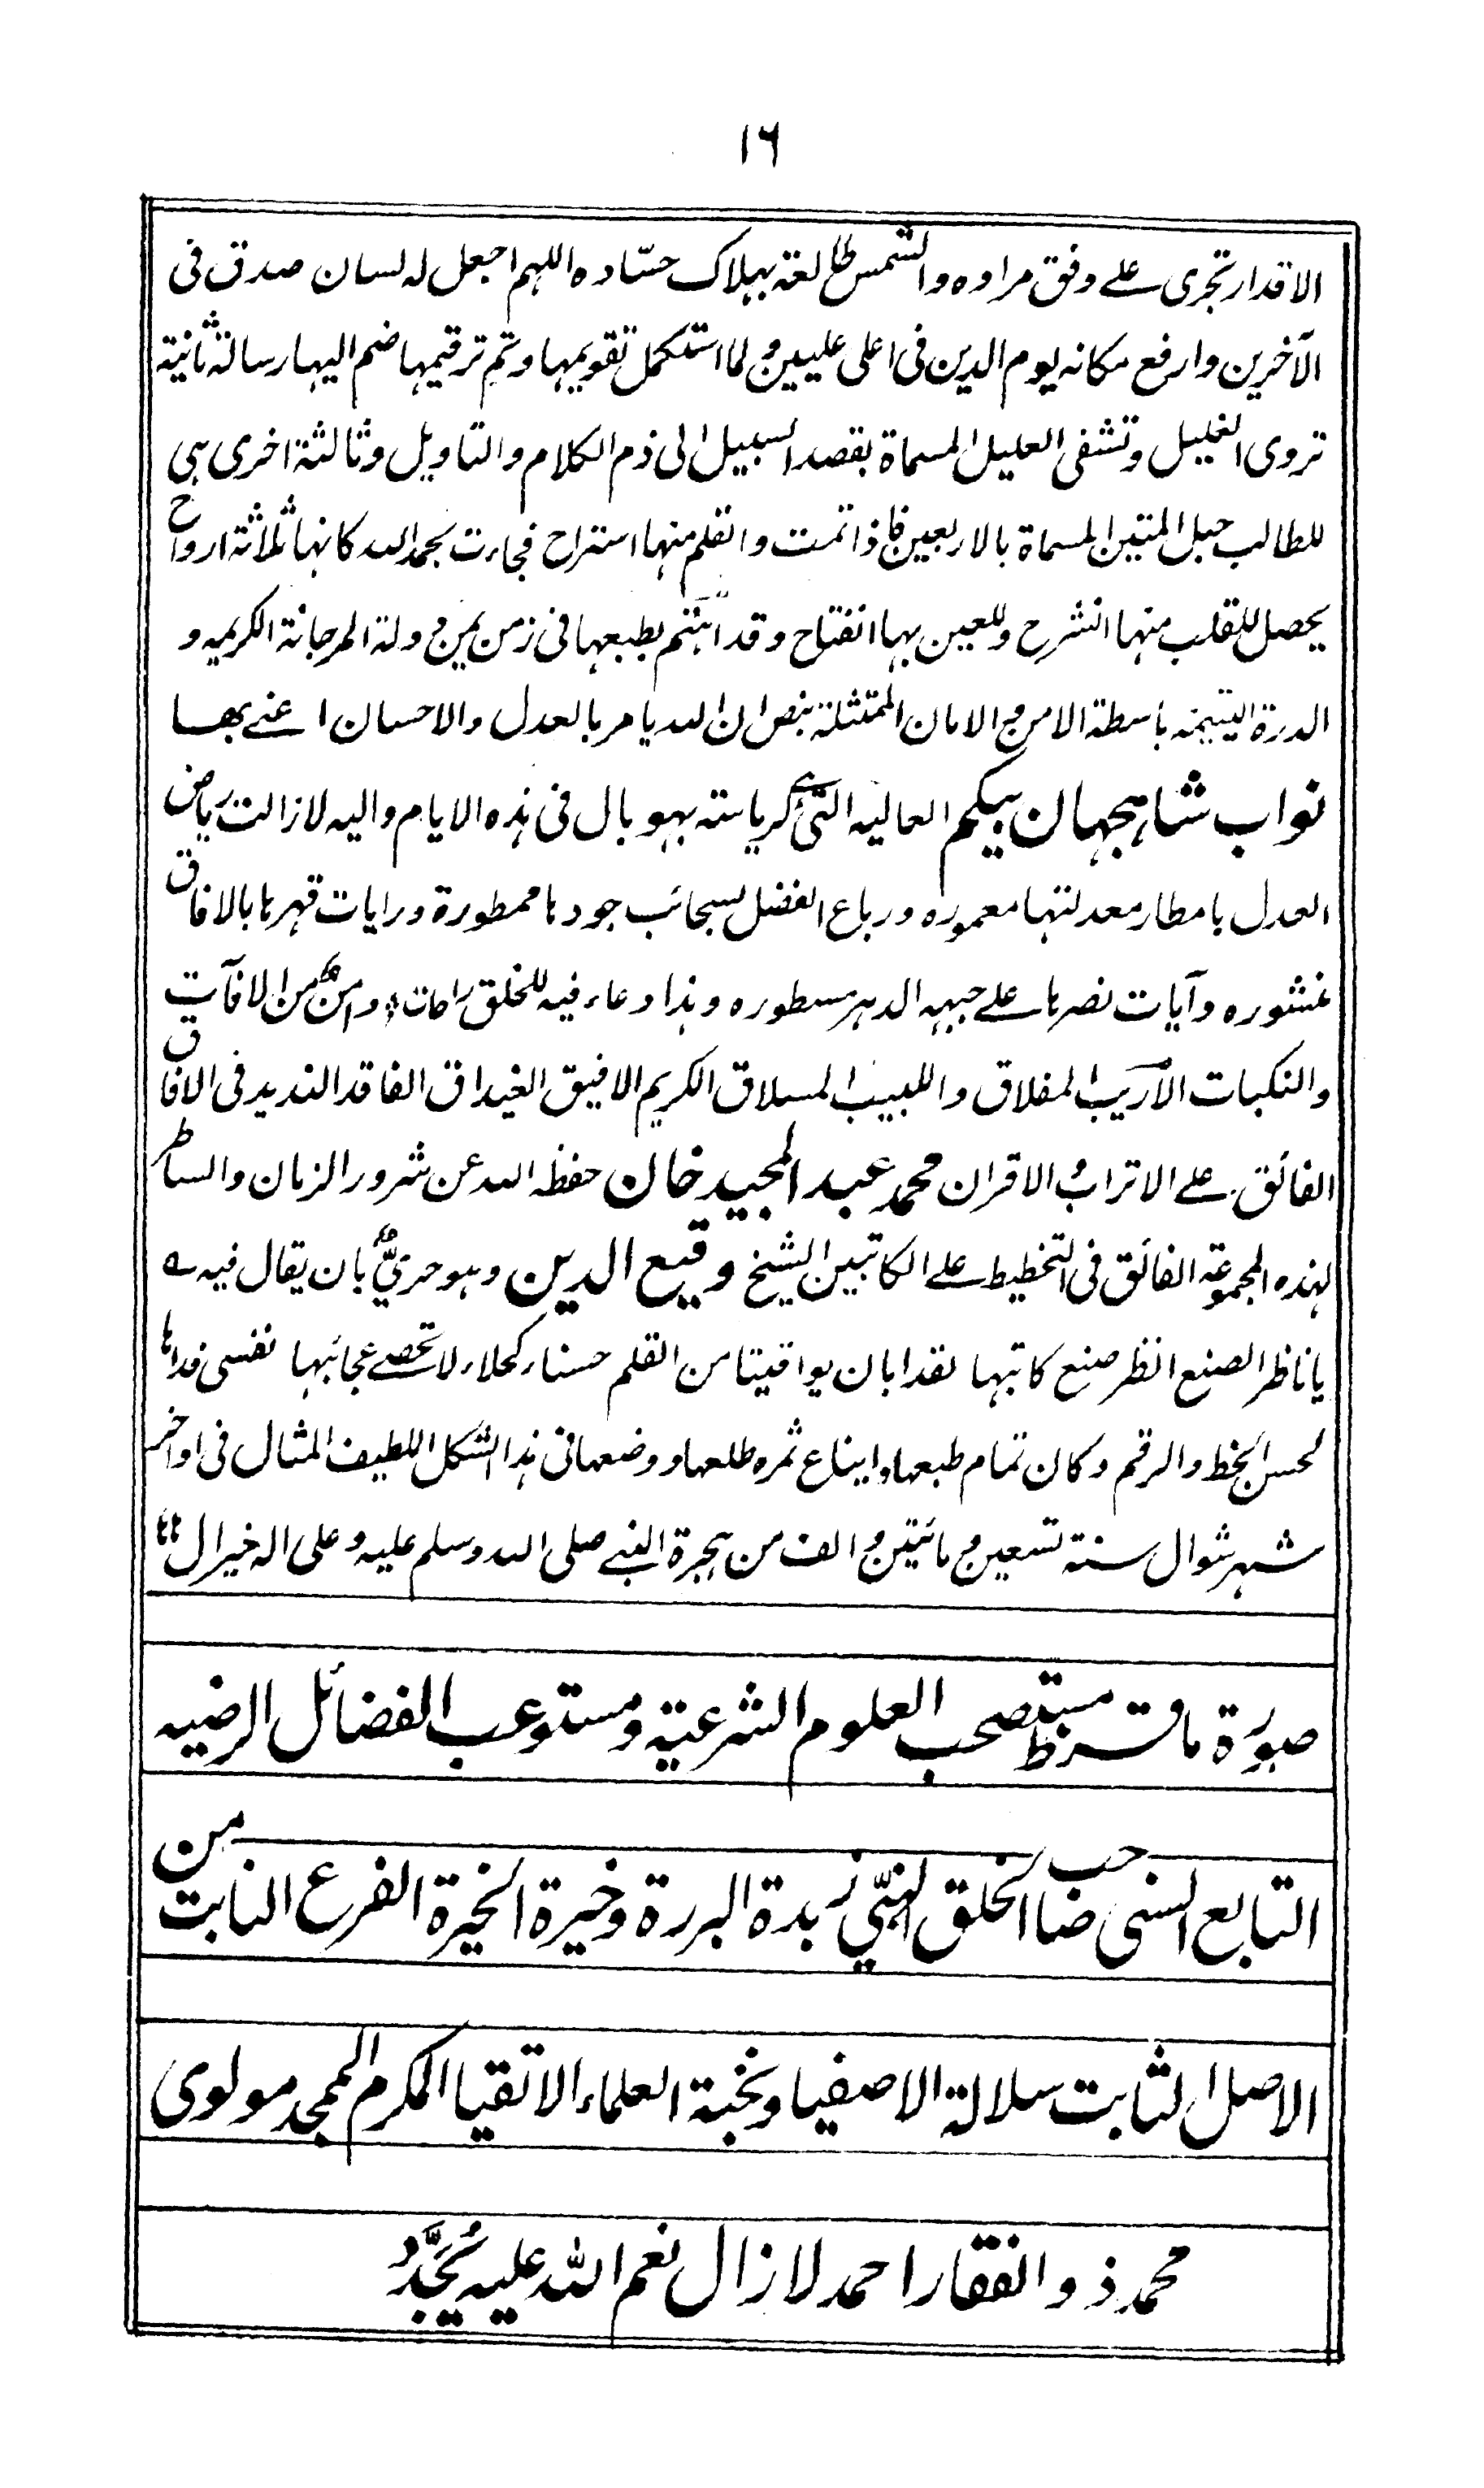 ١٦
الاقدار تجرى على وفق مراوه والشمس طالعة بهلاك حسّاده اللهم اجعل له لسان صدق فى
الآخرين وارفع مكانه يوم الدين فى اعلى عليين ولما استكمل تقويمها وتم ترقيمها ضم اليها رسالة ثانية
تروى الغليل وتشفى العليل المسماة بقصد السبيل الى ذم الكلام والتاويل وثالثة اخرى هى
للطالب حبل المتين المسماة بالاربعين فاذا تمت والقلم منها استراح فجاءت بحمد الله كانها ثلاثة ارواح
يحصل للقلب منها انشرح وللعين بها انفتاح وقد اهتم بطبعها فى زمن يمن دولة المرجانة الكريمه و
الدرة اليتيمه باسطة الامن والامان الممتثلة بنص ان الله يامر بالعدل والاحسان اعنى بها
نواب شاهجهان بيگم العاليه التى رياسة بهوبال فى هذه الايام واليه لازالت رياض
العدل بامطار معدلتها معموره ورباع الفضل بسحائب جودها ممطورة ورايات قهرها بالافاق
منشوره وآيات نصرها على جبهه الدهر مسطوره وهذا دعاء فيه للخلق راحات وامن من الافآت
والنكبات الأريب المفلاق واللبيب المسلاق الكريم الافيق الغيداق الفاقد النديد فى الافاق
الفائق على الاتراب والاقران محمد عبد المجيد خان حفظه الله عن شرور الزمان والساطر
لهذه المجموعة الفائق فى التخطيط على الكاتبين الشيخ وقيع الدين وهو حريٌّ بان يقال فيه
يا ناظر الصنع انظر صنع كاتبها لقد ابان يواقيتا من القلم حسناء كحلاء لا تحصى عجائبها نفسى فداها
لحسن الخط والرقم وكان تمام طبعها وايناع ثمره طلعها ووضعها فى هذا الشكل اللطيف المثال فى اواخر
شهر شوال سنة تسعين ومائتين والف من هجرة النبى صلى الله وسلم عليه وعلى اله خير ال
صورة ما قرظ مستصحب العلوم الشرعية ومستوعب الفضائل الرضيه
التابع السنى صاحب الخلق البهيّ زبدة البررة وخيرة الخيرة الفرع النابت من
الاصل الثابت سلالة الاصفيا ونخبة العلماء الاتقيا المكرم الممجد مولوى
محمد ذو الفقار احمد لازال نعم الله عليه يُجَدَّدُ